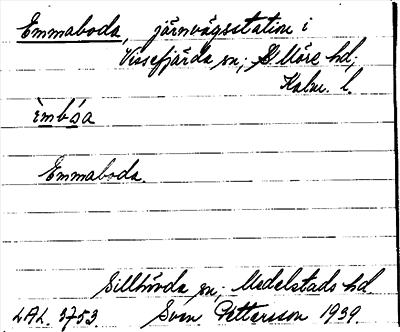 Emmaboda, järnvägsstation i
Vissefjärda sn; S Möre hd;
Kalm. l.
èmbóa
Emmaboda.
Sillhövda sn; Medelstads hd.
LAL. 3753 Sven Pettersson 1939.